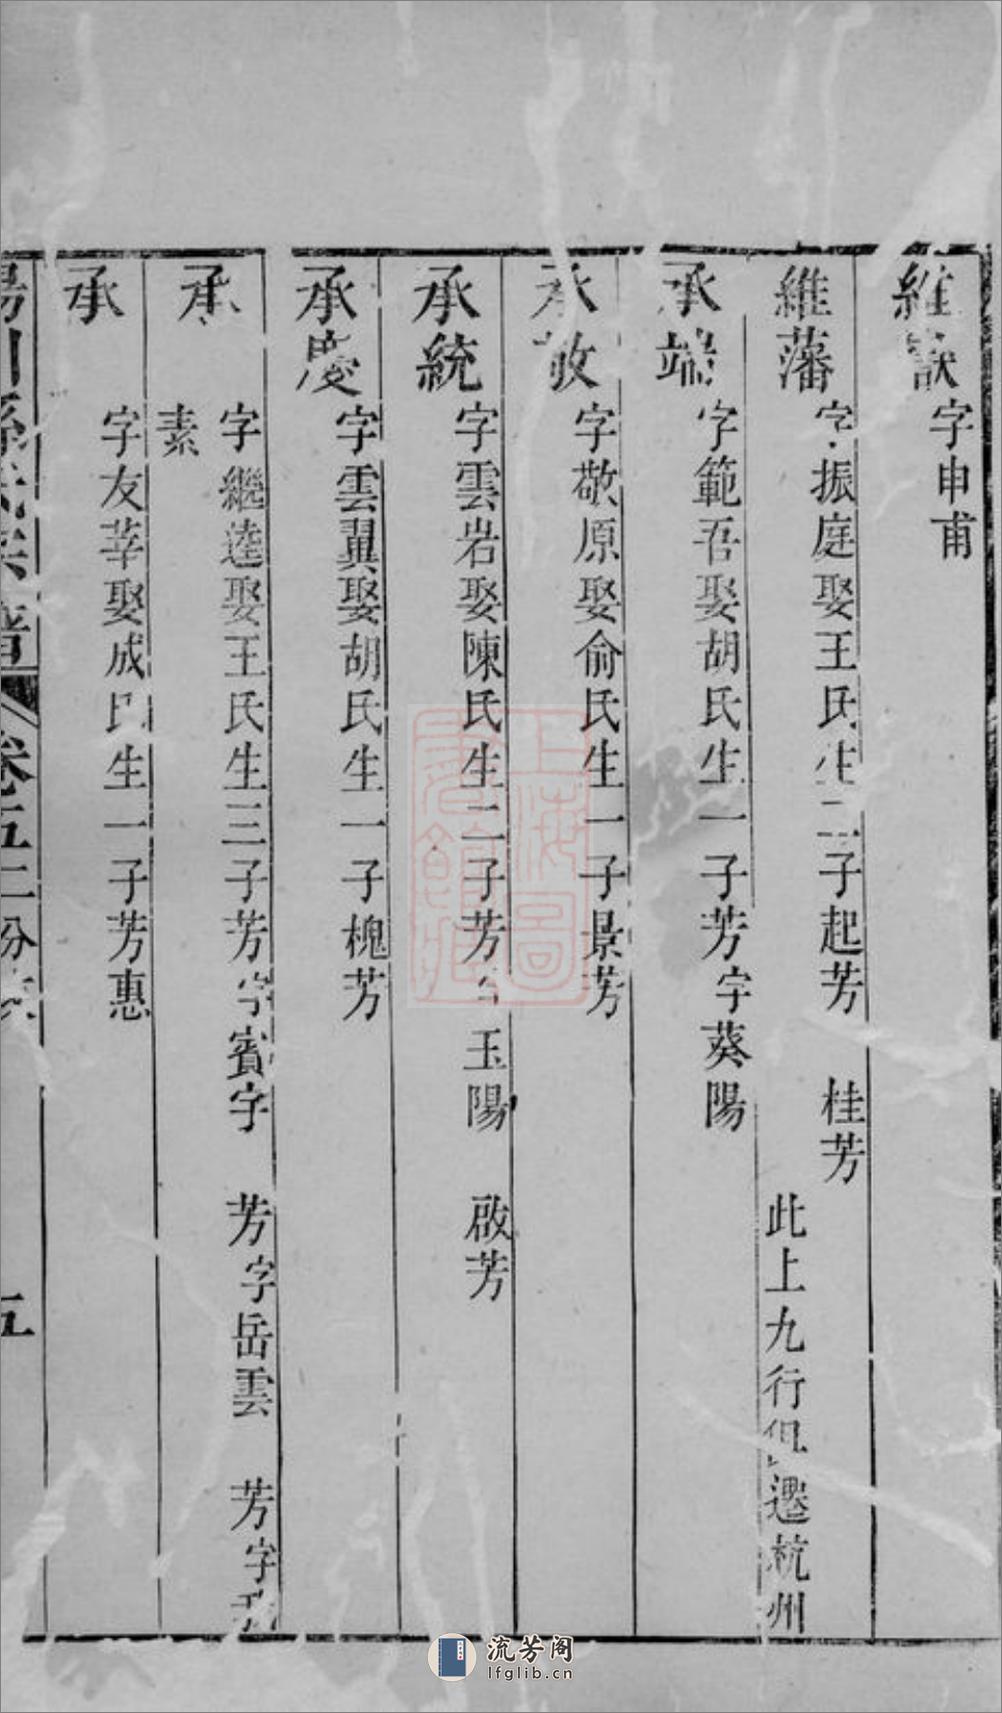 維猷字申甫
維藩字振庭娶王氏生二子起芳 桂芳
此上九行俱遷杭州
承端字範吾娶胡氏生一子芳字葵陽
承敬字敬原娶俞氏生一子景芳
承統字雲岩娶陳氏生二子芳字玉陽 啟芳
承慶字雲翼娶胡氏生一子槐芳
承 字繼逵娶王氏生三子芳字賓字 芳字岳雲 芳字
素
承 字友莘娶成氏生一子芳惠
陽川孫氏宗譜 卷五二份 五
上海圖書館藏
流芳阁
lfglib.cn